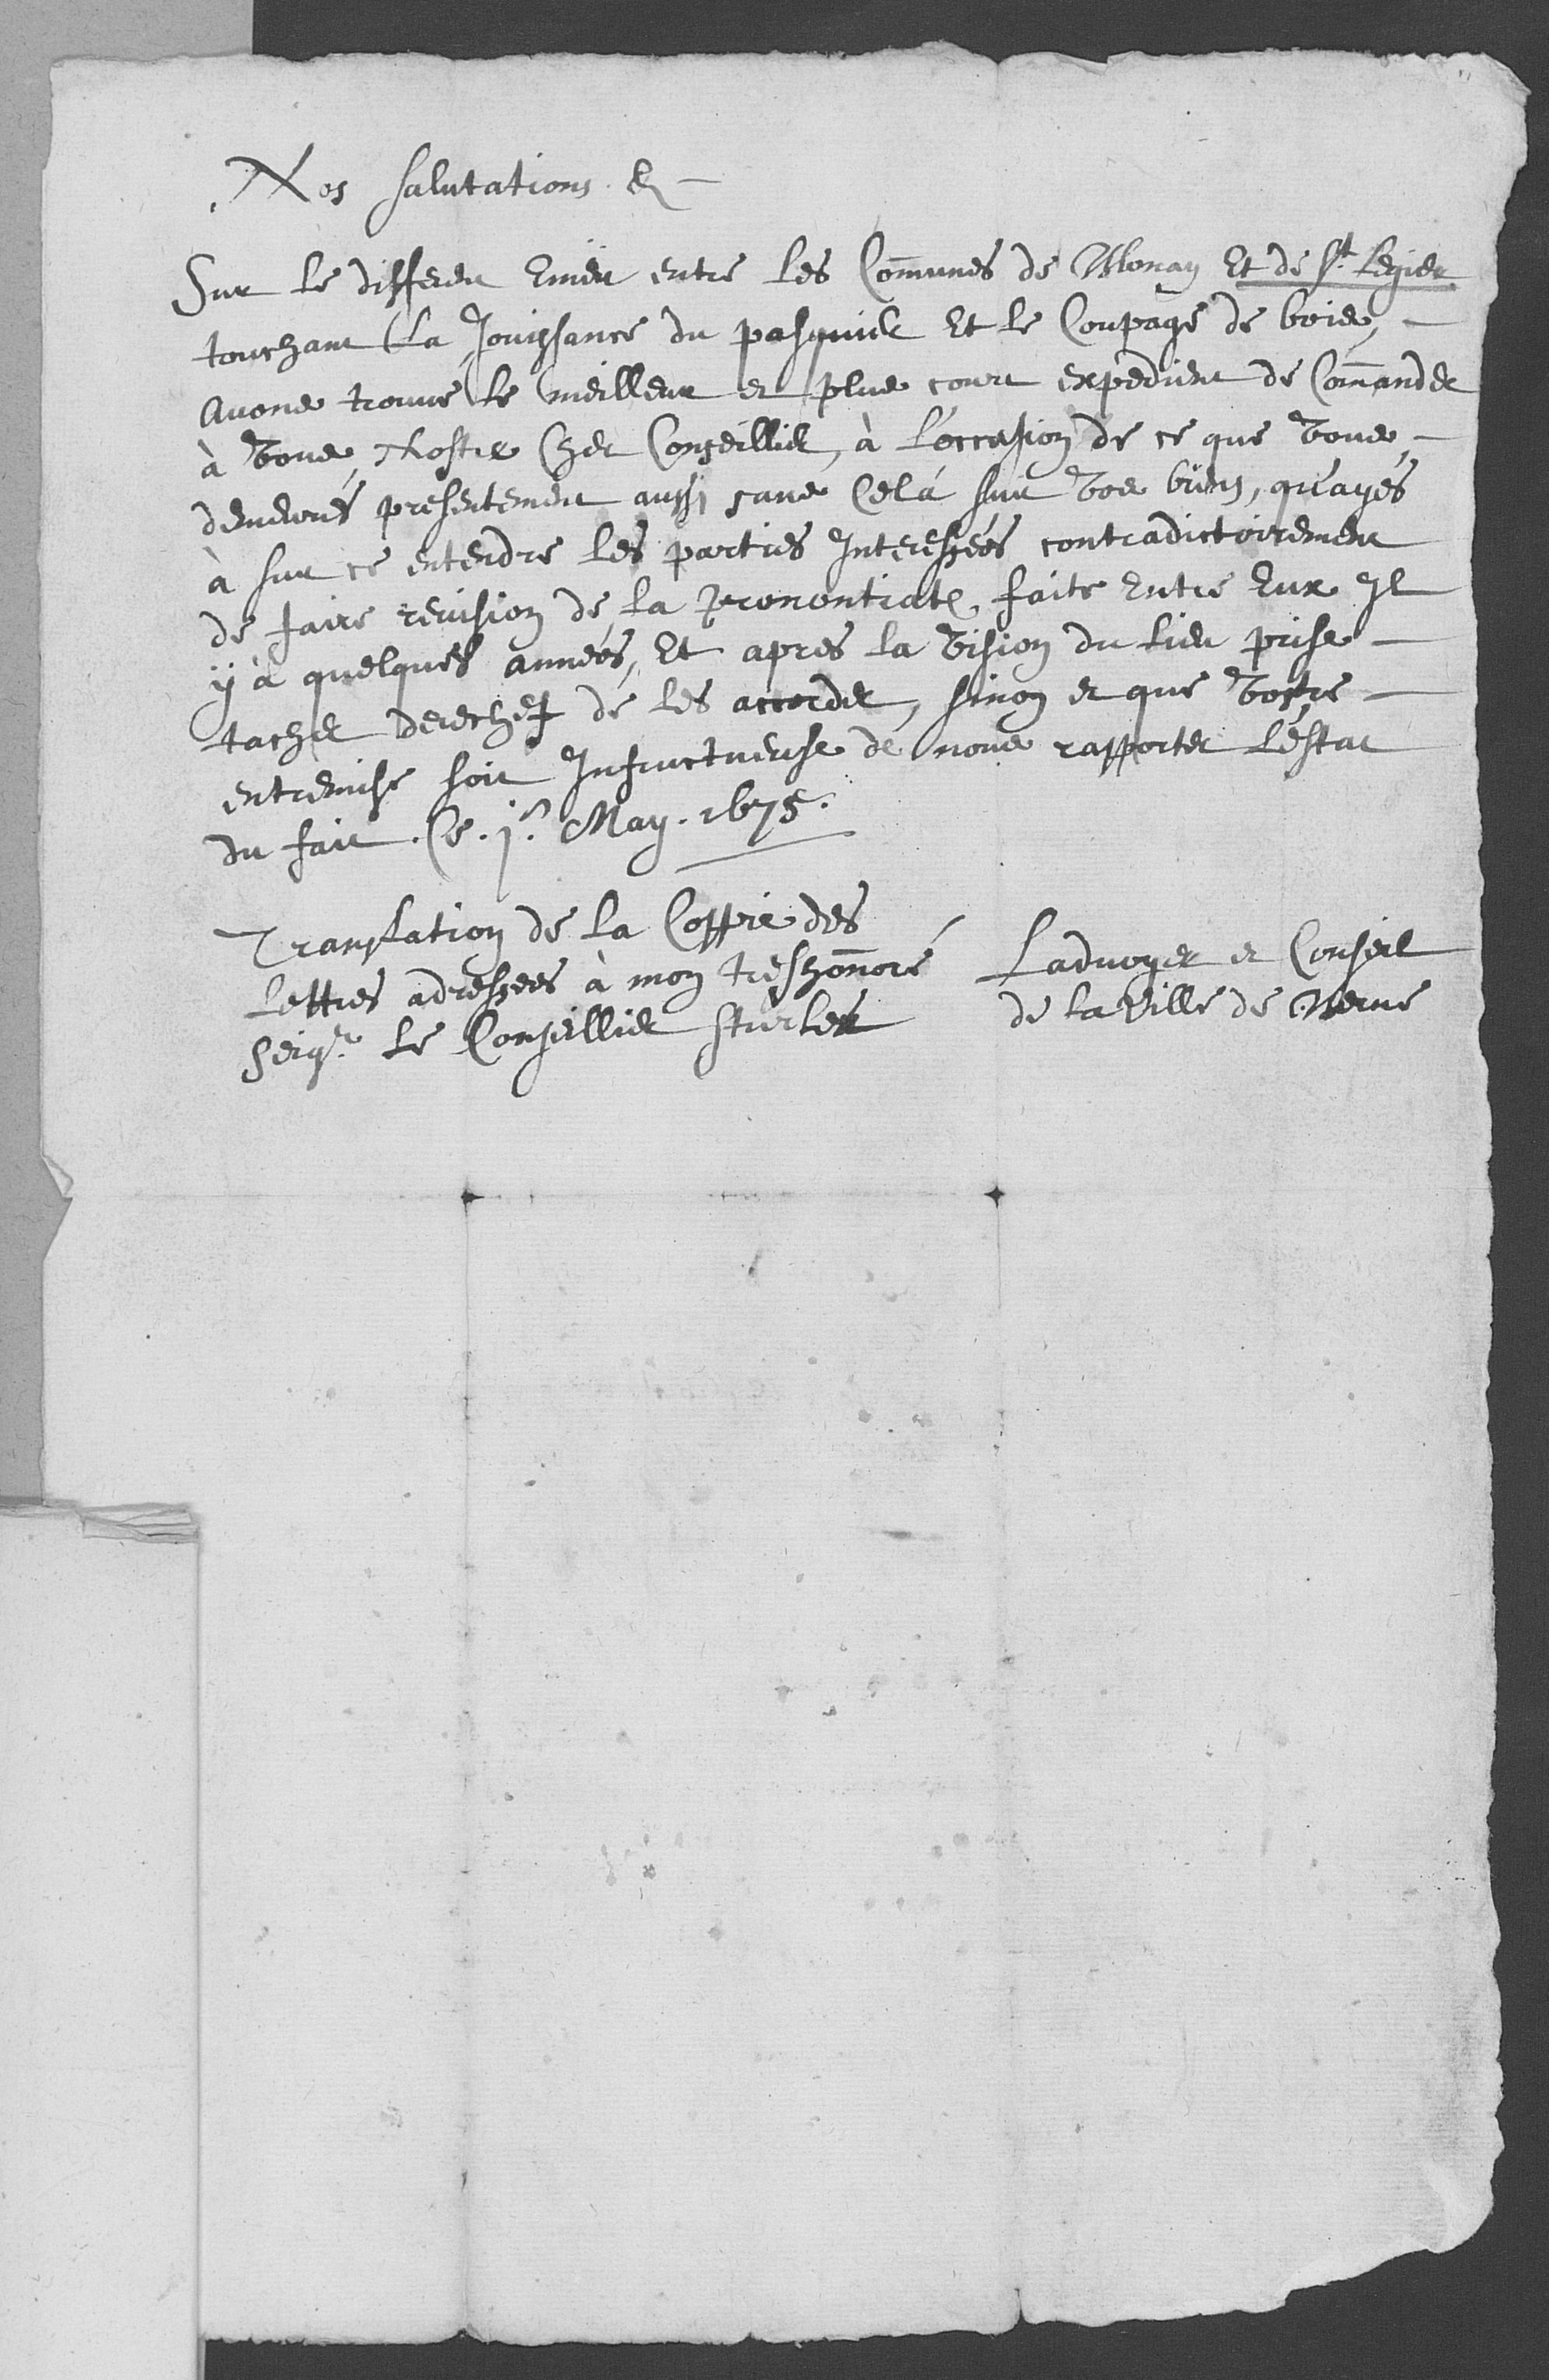 Nos salutations &c
Sur le different Emeu entre les Com̄unes de Blonay Et de St. Legier
touchant La Jouissance du pasquier Et le Coupage de bois,
Avons trouvé le meilleur et plus court expedient de Com̄ander
à Vous, Nostre Cher Conseillier, à l'occasion de ce que Vous
demeurés presentement aussi sans Celà sur Vos biens, qu'ayés
à sur ce entendre les parties Interessées contradictoirement
de faire revision de la prononciate, faite Entre Eux Il
ÿ à quelques années, Et apres la Vision du lieu prise
tacher derechef de les accorder, sinon et que Vostre
entremise soit Infructueuse de nous rapporter l'éstat
du fait. Ce. j.e May. 1675.
Translation de la Coppie des
Lettres adressées à mon treshon̄oré
Seigr. le Conseillier Sturler
Ladvoyer et Conseil
de la Ville de Berne